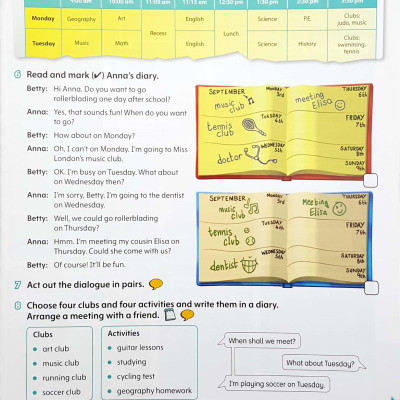 9:00 am 10:00 am 11:00 am 11:15 am 12:30 pm 1:30 pm 2:30 pm 3:30 pm
Monday Geography Art Recess English Lunch Science P.E. Clubs: judo, music
Tuesday Music Math English Science History Clubs: swimming, tennis
Read and mark (✔) Anna's diary.
Betty: Hi Anna. Do you want to go
rollerblading one day after school?
Anna: Yes, that sounds fun! When do you want
to go?
Betty: How about on Monday?
Anna: Oh, I can't on Monday. I'm going to Miss
London's music club.
Betty: OK. I'm busy on Tuesday. What about
on Wednesday then?
Anna: I'm sorry, Betty. I'm going to the dentist
on Wednesday.
Betty: Well, we could go rollerblading
on Thursday?
Anna: Hmm. I'm meeting my cousin Elisa on
Thursday. Could she come with us?
Betty: Of course! It'll be fun.
SEPTEMBER
Monday 3rd
music club
TUESDAY 4th
tennis club
WEDNESDAY 5th
doctor
THURSDAY 6th
meeting Elisa
FRIDAY 7th
SATURDAY 8th
SUNDAY 9th
SEPTEMBER
Monday 3rd
music club
TUESDAY 4th
tennis club
WEDNESDAY 5th
dentist
THURSDAY 6th
Meeting Elisa
FRIDAY 7th
SATURDAY 8th
SUNDAY 9th
7 Act out the dialogue in pairs.
Choose four clubs and four activities and write them in a diary.
Arrange a meeting with a friend.
Clubs
• art club
• music club
• running club
• soccer club
Activities
• guitar lessons
• studying
• cycling test
• geography homework
When shall we meet?
What about Tuesday?
I'm playing soccer on Tuesday.